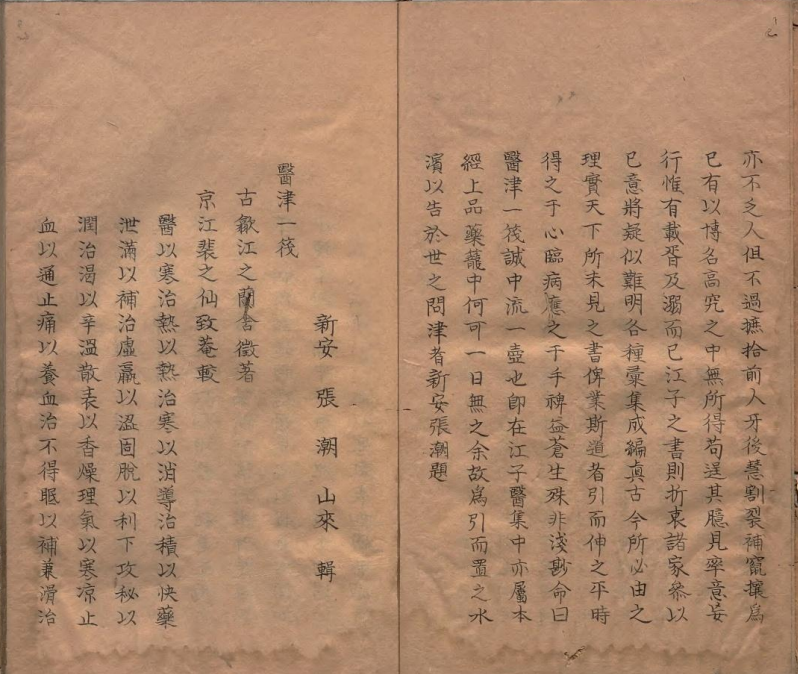 亦不乏人但不過摭拾前人牙後慧割裂補竄攘爲
已有以博名高究之中無所得苟逞其臆見率意妄
行惟有載胥及溺而已江子之書則折衷諸家參以
已意將疑似難明各種彙集成編真古今所必由之
理實天下所未見之書俾業斯道者引而伸之平時
得之于心臨病應之于手裨益蒼生殊非淺尠命曰
醫津一筏誠中流一壺也即在江子醫集中亦屬本
經上品藥蘢中何可一日無之余故爲引而置之水
濱以告於世之問津者新安張潮題
新安張潮山來輯
醫津一筏
古歙江之蘭含徵著
京江裴之仙致菴較
醫以寒治熱以熱治寒以消導治積以快藥
泄滿以補治虛羸以澀固脫以利下攻秘以
潤治渴以辛溫散表以香燥理氣以寒凉止
血以通止痛以養血治不得眠以補兼滑治